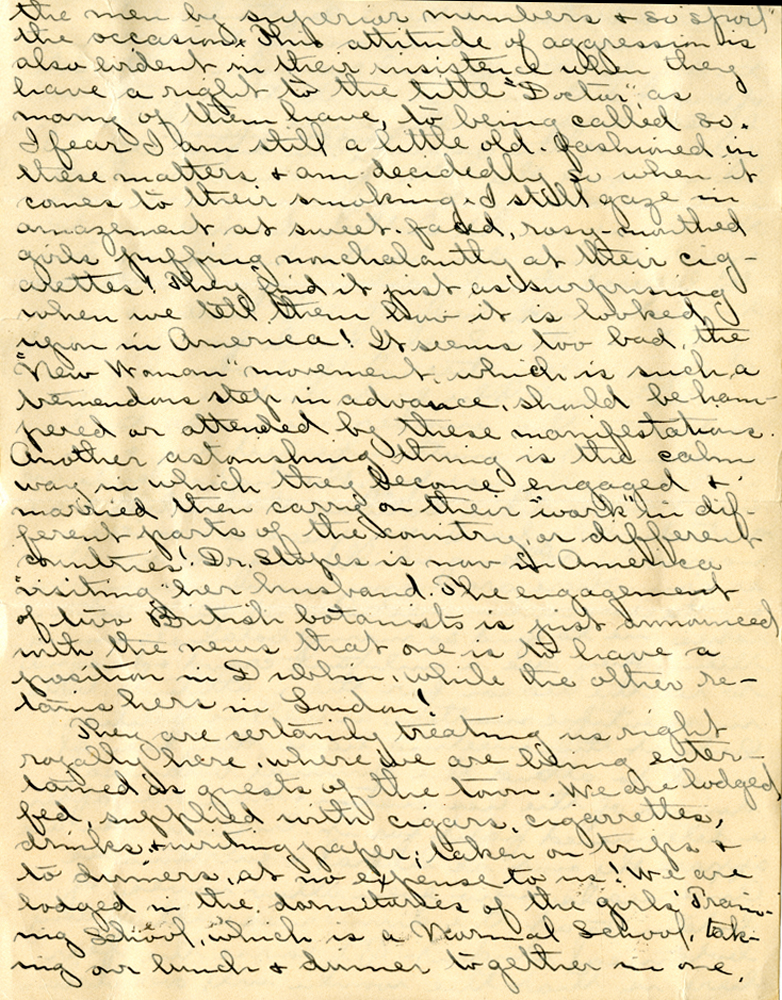 the men by superior numbers & so spoil
the occasion. This attitude of aggression is
also evident in their insistence when they
have a right to the title "Doctor", as
many of them have, to being called so.
I fear I am still a little old-fashioned in
these matters & am decidedly so when it
comes to their smoking. I still gaze in
amazement at sweet-faced, rosy-mouthed
girls puffing nonchalantly at their cig-
arettes! They find it just as surprising
when we tell them how it is looked
upon in America! It seems too bad, the
"New Woman" movement, which is such a
tremendous step in advance, should be ham-
pered or attended by these manifestations.
Another astonishing thing is the calm
way in which they become engaged &
married then carry on their "work" in dif-
ferent parts of the country, or different
countries! Dr. Stopes is now in America
"visiting" her husband. The engagement
of two British botanists is just announced
with the news that one is to have a
position in Dublin, while the other re-
tains hers in London!
They are certainly treating us right
royally here, where we are being enter-
tained as guests of the town. We are lodged,
fed, supplied with cigars, cigarrettes,
drinks, & writing paper; taken on trips &
to dinners, at no expense to us! We are
lodged in the dormitaries of the girls' Train-
ing School, which is a Normal School, tak-
ing our lunch & dinner together in one,